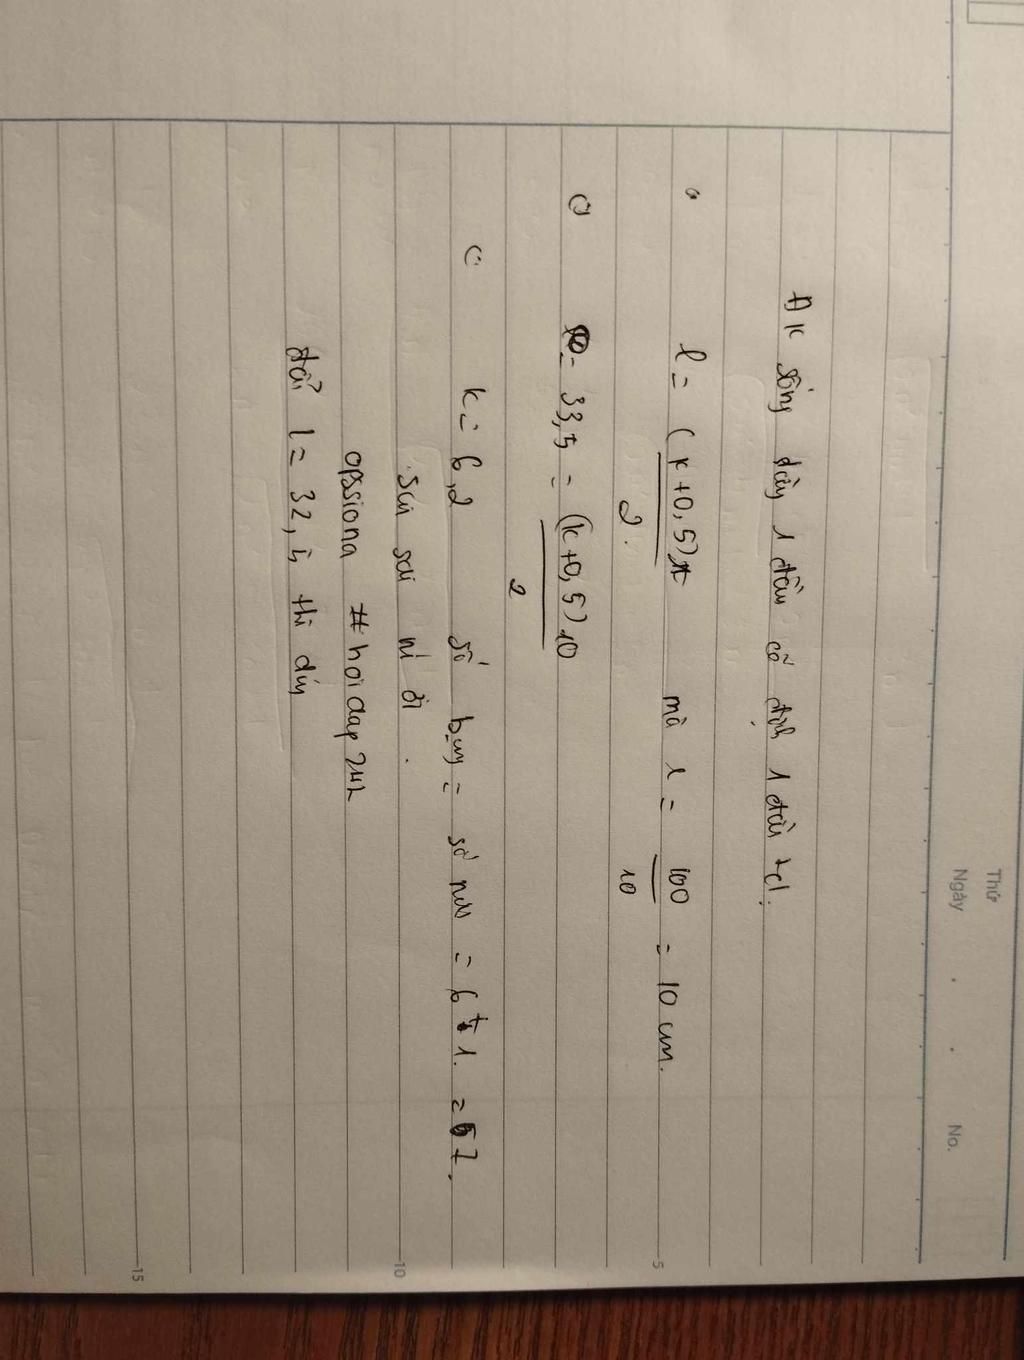 Thứ
Ngày . . No.
ĐK sóng dừng 1 đầu cố định 1 đầu td.
l = (k+0,5)λ mà λ = 100 = 10 cm.
2. 10
5
- 33,5 = (k+0,5)10
2
k = 6,2 số bụng = số nút = 6+1. = 7.
sai đi.
10
#hoidap247
đổi l = 32,5 thì đúng
15